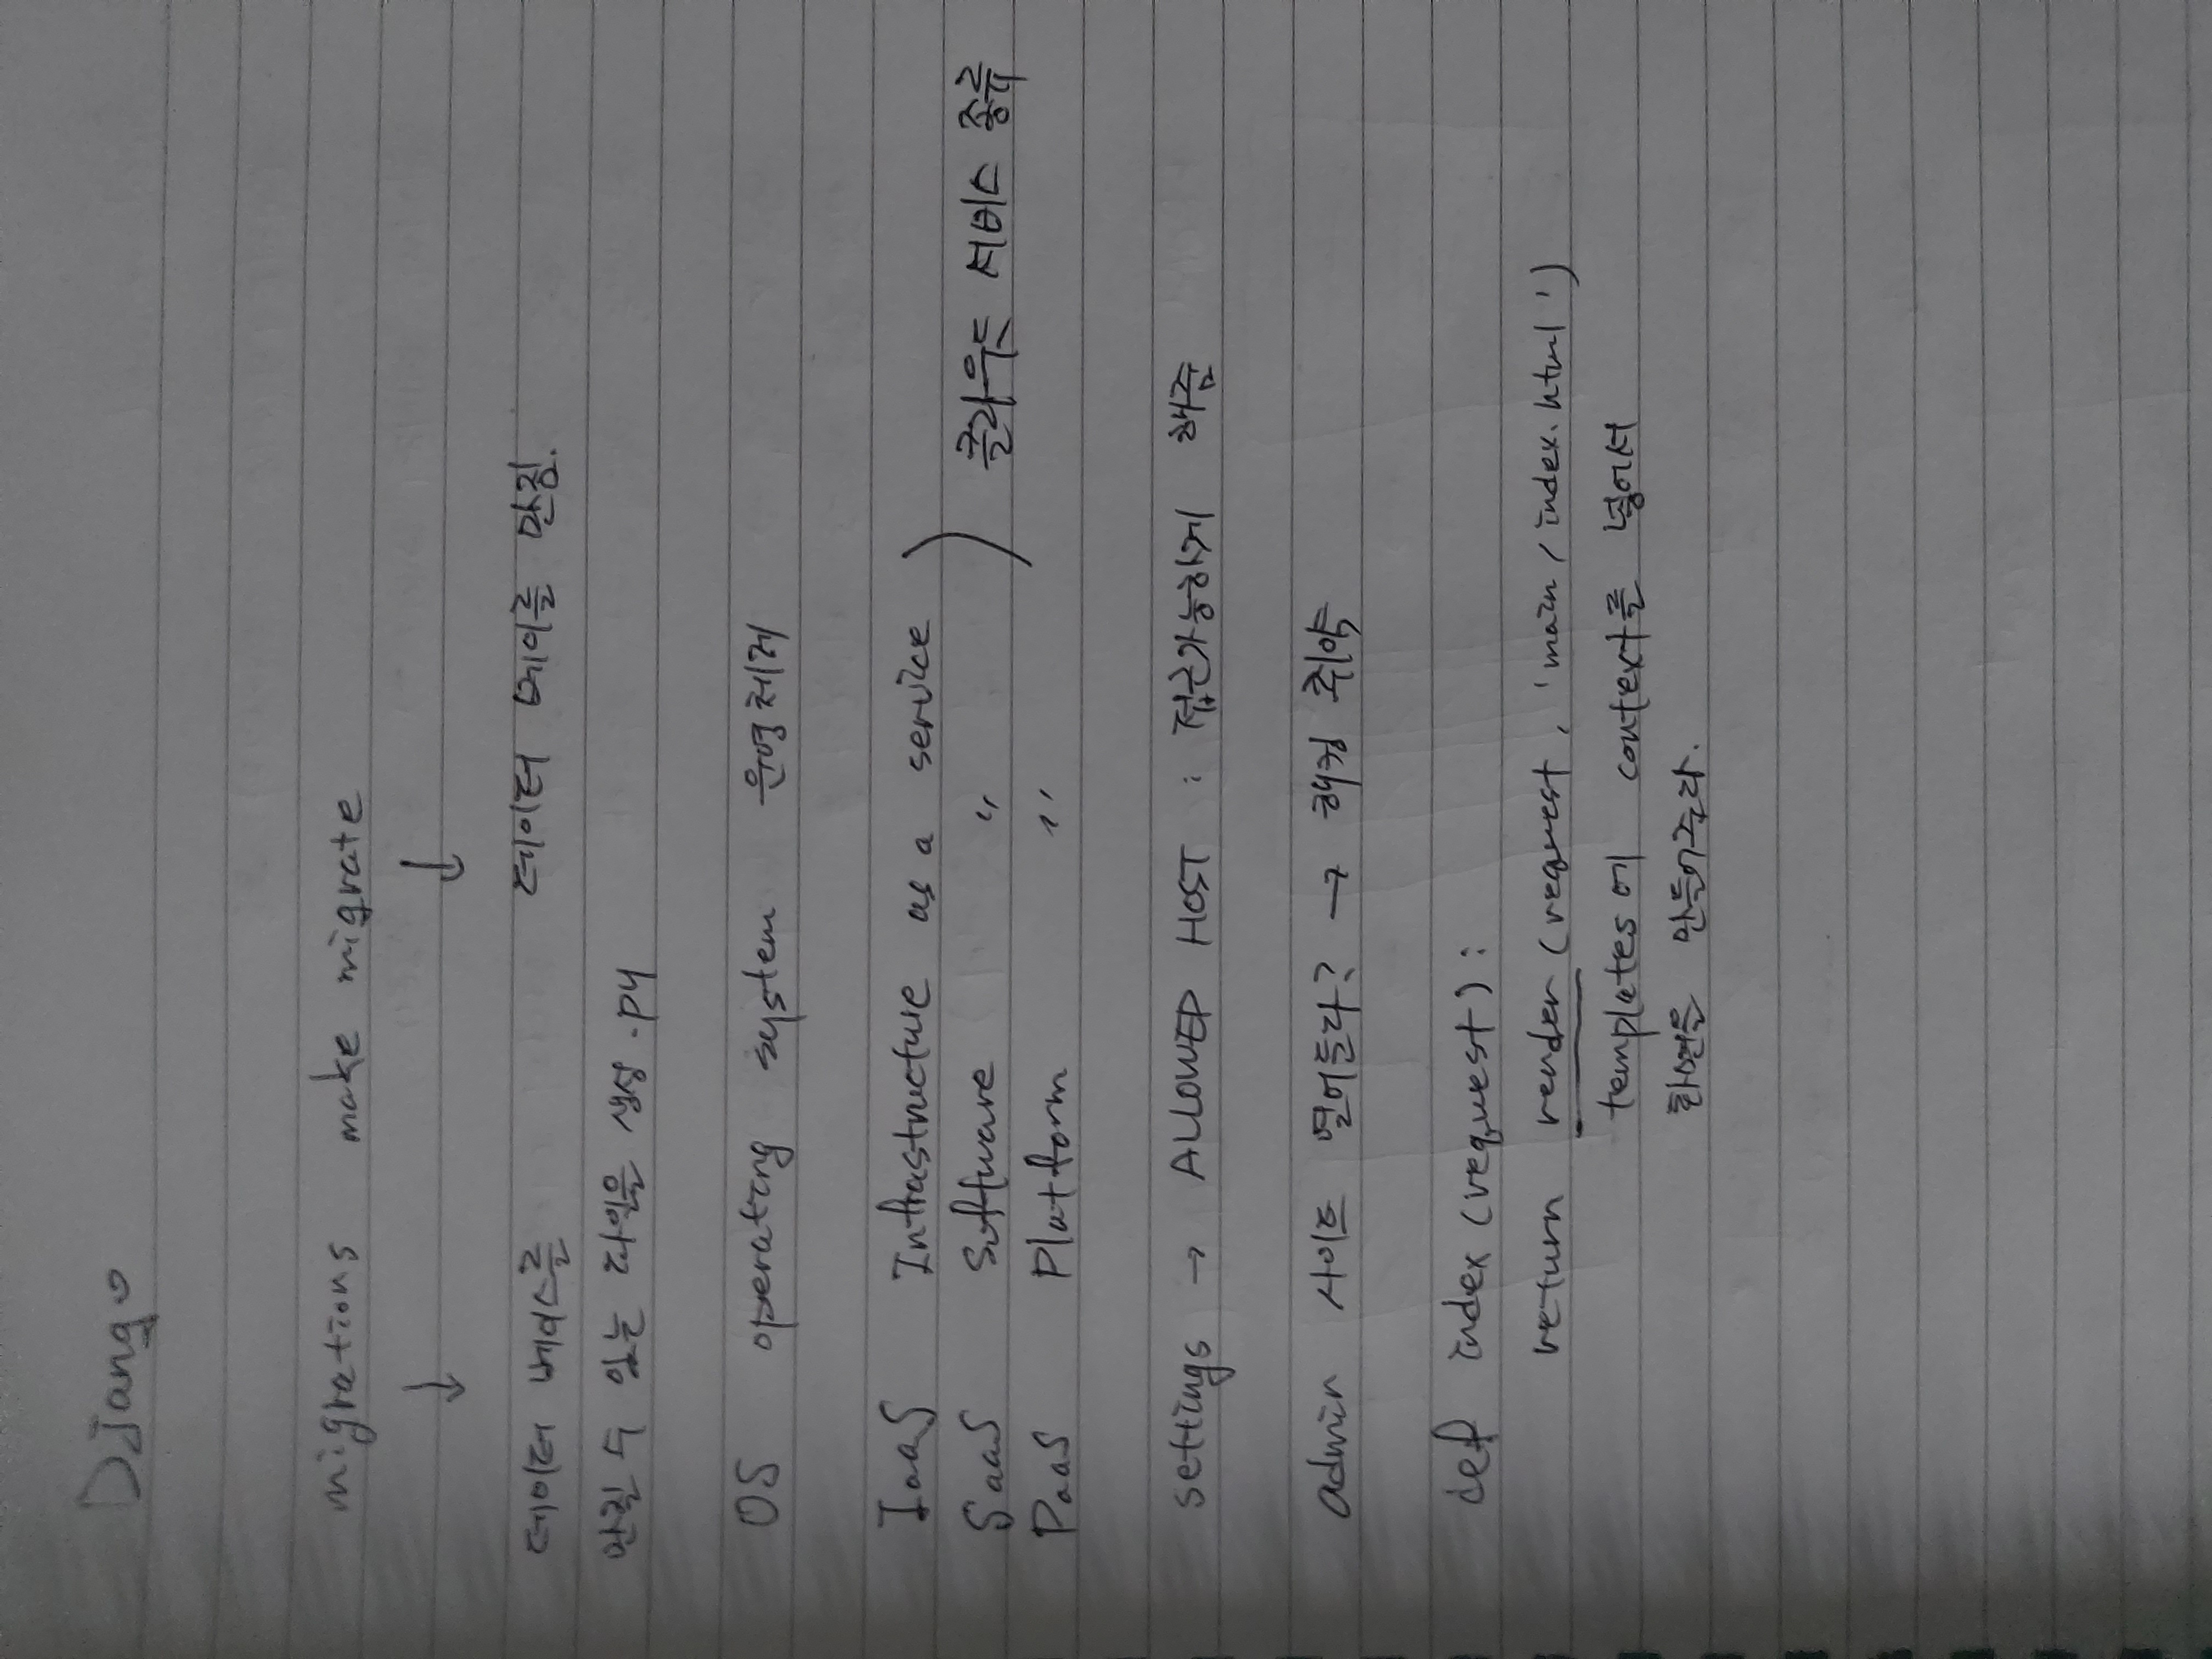 Django
migrations make migrate
↓ ↓
데이터 베이스를 데이터 베이를 만짐.
만질 수 있는 파일을 생성 .py
OS operating system 운영체제
IaaS Infrastructure as a service
SaaS Software 〃 클라우드 서비스 종류
PaaS Platform 〃
settings → ALLOWED HOST : 접근가능하게 해줌
admin 사이트 열어둔다? → 해킹 취약
def index (request) :
return render (request, 'main/index.html')
templates에 context를 넣어서
화면을 만들어주라.